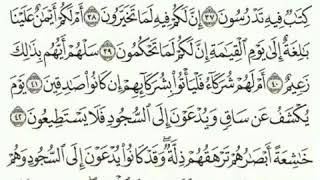 كِتَٰبٌ فِيهِ تَدْرُسُونَ ٣٧ إِنَّ لَكُمْ فِيهِ لَمَا تَخَيَّرُونَ ٣٨ أَمْ لَكُمْ أَيْمَٰنٌ عَلَيْنَا
بَٰلِغَةٌ إِلَىٰ يَوْمِ ٱلْقِيَٰمَةِ إِنَّ لَكُمْ لَمَا تَحْكُمُونَ ٣٩ سَلْهُمْ أَيُّهُم بِذَٰلِكَ
زَعِيمٌ ٤٠ أَمْ لَهُمْ شُرَكَآءُ فَلْيَأْتُوا۟ بِشُرَكَآئِهِمْ إِن كَانُوا۟ صَٰدِقِينَ ٤١ يَوْمَ
يُكْشَفُ عَن سَاقٍ وَيُدْعَوْنَ إِلَى ٱلسُّجُودِ فَلَا يَسْتَطِيعُونَ ٤٢
خَٰشِعَةً أَبْصَٰرُهُمْ تَرْهَقُهُمْ ذِلَّةٌ ۖ وَقَدْ كَانُوا۟ يُدْعَوْنَ إِلَى ٱلسُّجُودِ وَهُمْ